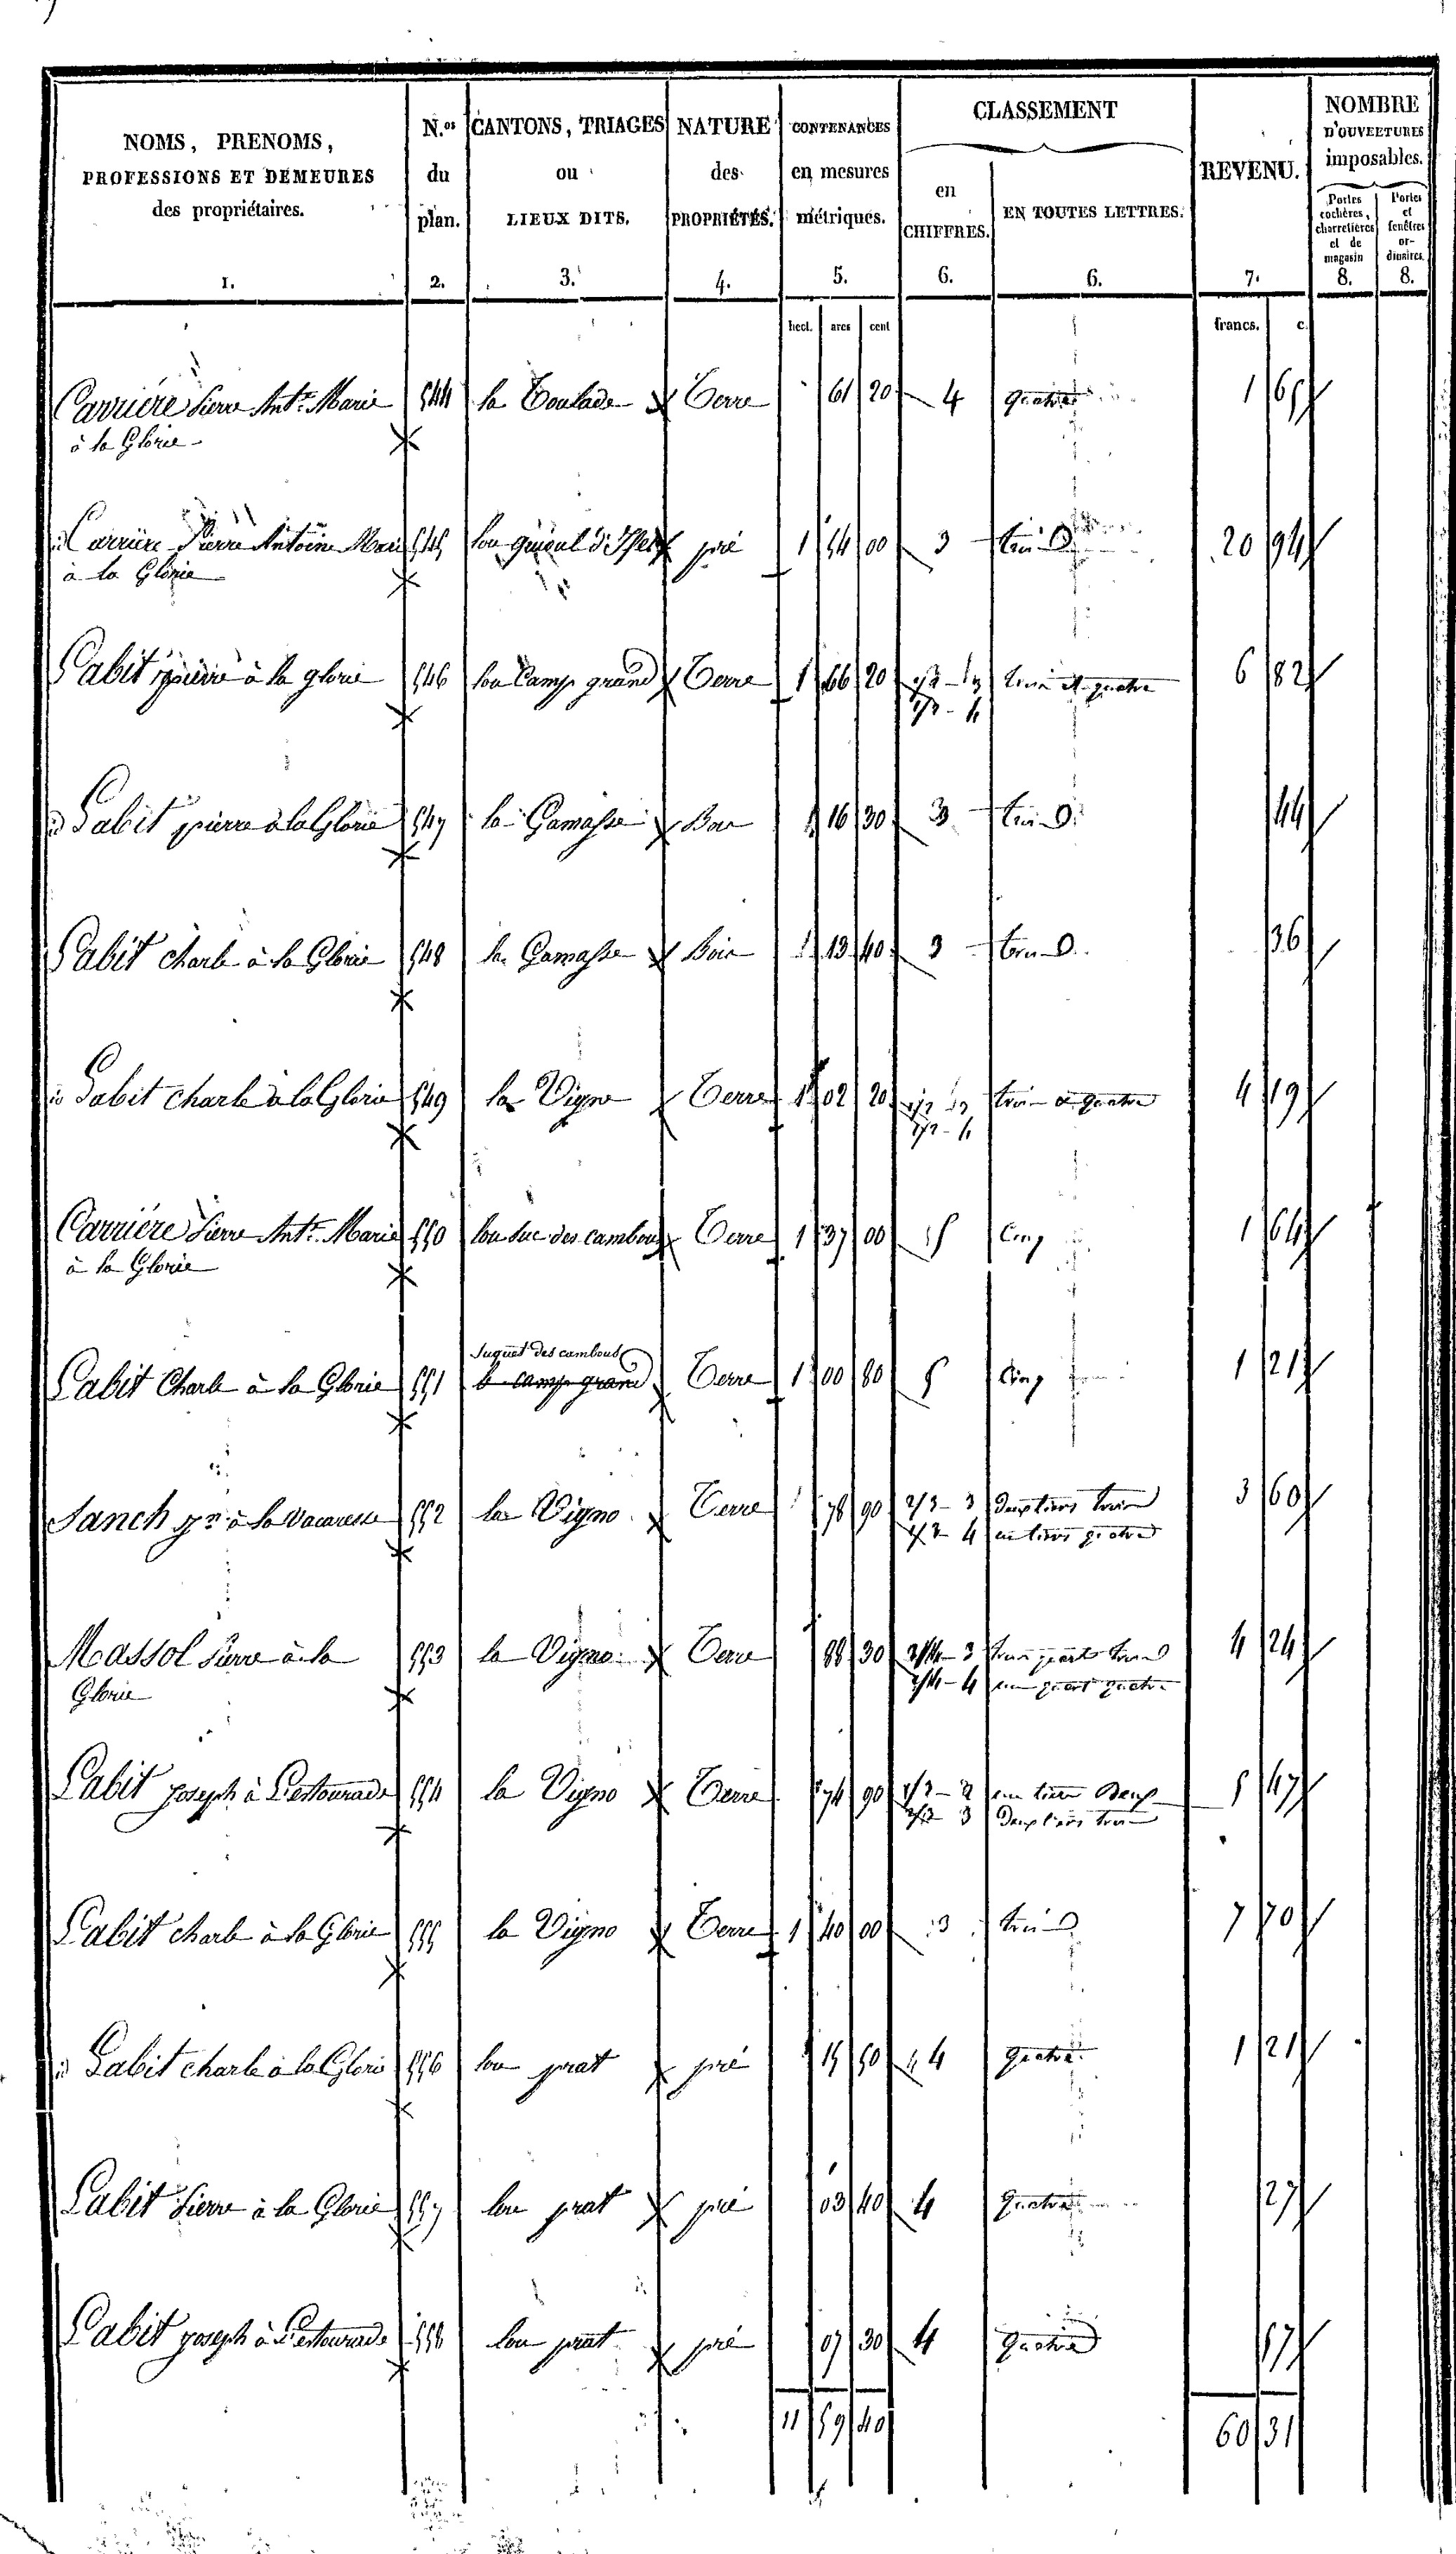 NOMS, PRENOMS, PROFESSIONS ET DEMEURES des propriétaires. 1.
N.os du plan. 2.
CANTONS, TRIAGES ou LIEUX DITS. 3.
NATURE des PROPRIÉTÉS. 4.
CONTENANCES en mesures métriques. 5.
CLASSEMENT
en CHIFFRES. 6.
EN TOUTES LETTRES. 6.
REVENU. 7.
NOMBRE D'OUVERTURES imposables.
Portes cochères, charretières et de magasin 8.
Portes et fenêtres ordinaires. 8.
hect. ares cent francs. c.
Carrière Pierre Ant.e Marie 544 la Coulade Terre 61 20 4 quatre 1 65
à la Glorie
Carrière Pierre Antoine Marie 545 lou pré 1 54 00 3 trois 20 94
à la Glorie
Labit pierre à la glorie 546 lou Camp grand Terre 1 66 20 1/2 - 3 trois et quatre 6 82
1/2 - 4
Labit pierre à la Glorie 547 la Gamasse Bois 16 30 3 trois 44
Labit charle à la Glorie 548 la Gamasse Bois 13 40 3 trois 36
Labit charle à la Glorie 549 la Vigno Terre 1 02 20 1/2 3 trois et quatre 4 19
1/2 - 4
Carrière Pierre Ant.e Marie 550 lou suc des cambous Terre 1 37 00 5 Cinq 1 64
à la Glorie
Suquet des cambous
Labit Charle à la Glorie 551 le camp grand Terre 1 00 80 5 Cinq 1 21
Sanch p.re à la Vacaresse 552 la Vigno Terre 78 90 2/3 - 3 deux tiers trois 3 60
1/3 4 un tiers quatre
Massol Pierre à la 553 la Vigno Terre 88 30 3/4 - 3 trois quarts trois 4 24
Glorie 1/4 - 4 un quart quatre
Labit joseph à Lestourade 554 la Vigno Terre 74 90 1/3 - 2 un tiers Deux 5 47
2/3 3 Deux tiers trois
Labit charle à la Glorie 555 la Vigno Terre 1 40 00 3 trois 7 70
Labit charle à la Glorie 556 lou prat pré 15 50 4 quatre 1 21
Labit Pierre à la Glorie 557 lou prat pré 03 40 4 Quatre 27
Labit joseph à Lestourade 558 lou prat pré 07 30 4 quatre 57
11 59 40 60 31